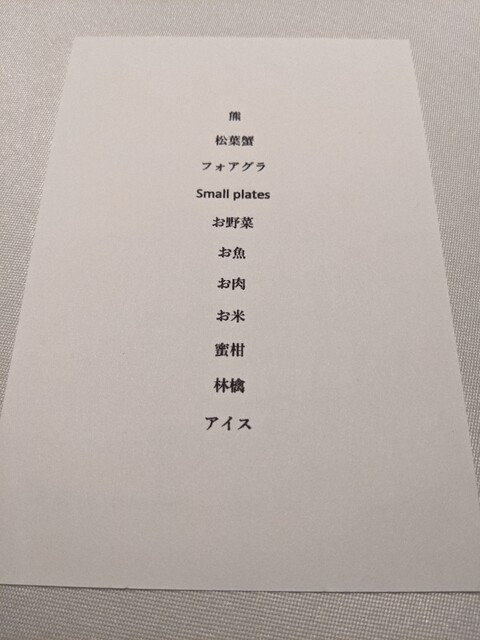 熊
松葉蟹
フォアグラ
Small plates
お野菜
お魚
お肉
お米
蜜柑
林檎
アイス